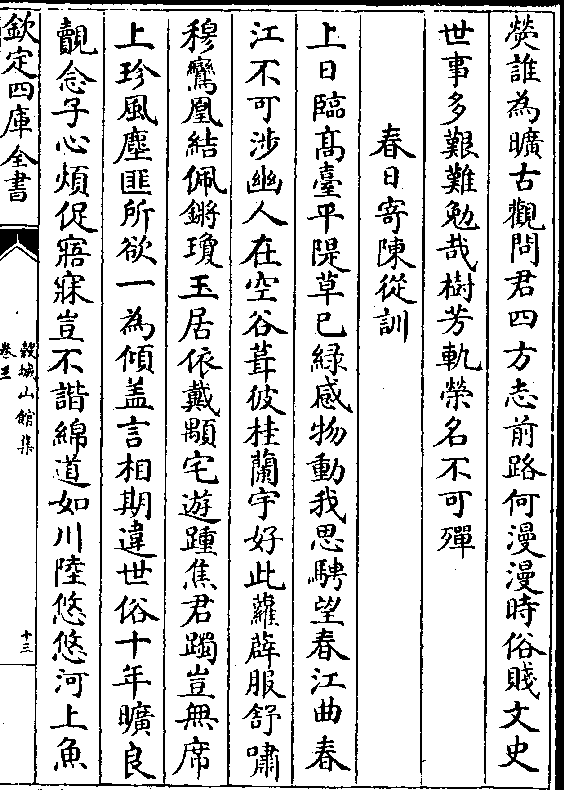 熒誰為曠古觀問君四方志前路何漫漫時俗賤文史
世事多艱難勉哉樹芳軌榮名不可殫
春日寄陳從訓
上日臨髙臺平隄草已緑感物動我思騁望春江曲春
江不可涉幽人在空谷葺彼桂蘭宇好此蘿薜服舒嘯
穆鸞凰結佩鏘瓊玉居依戴顒宅遊踵焦君躅豈無席
上珍風塵匪所欲一為傾盖言相期違世俗十年曠良
覿念子心煩促寤寐豈不諧綿道如川陸悠悠河上魚
欽定四庫全書
穀城山館集
卷三
十三